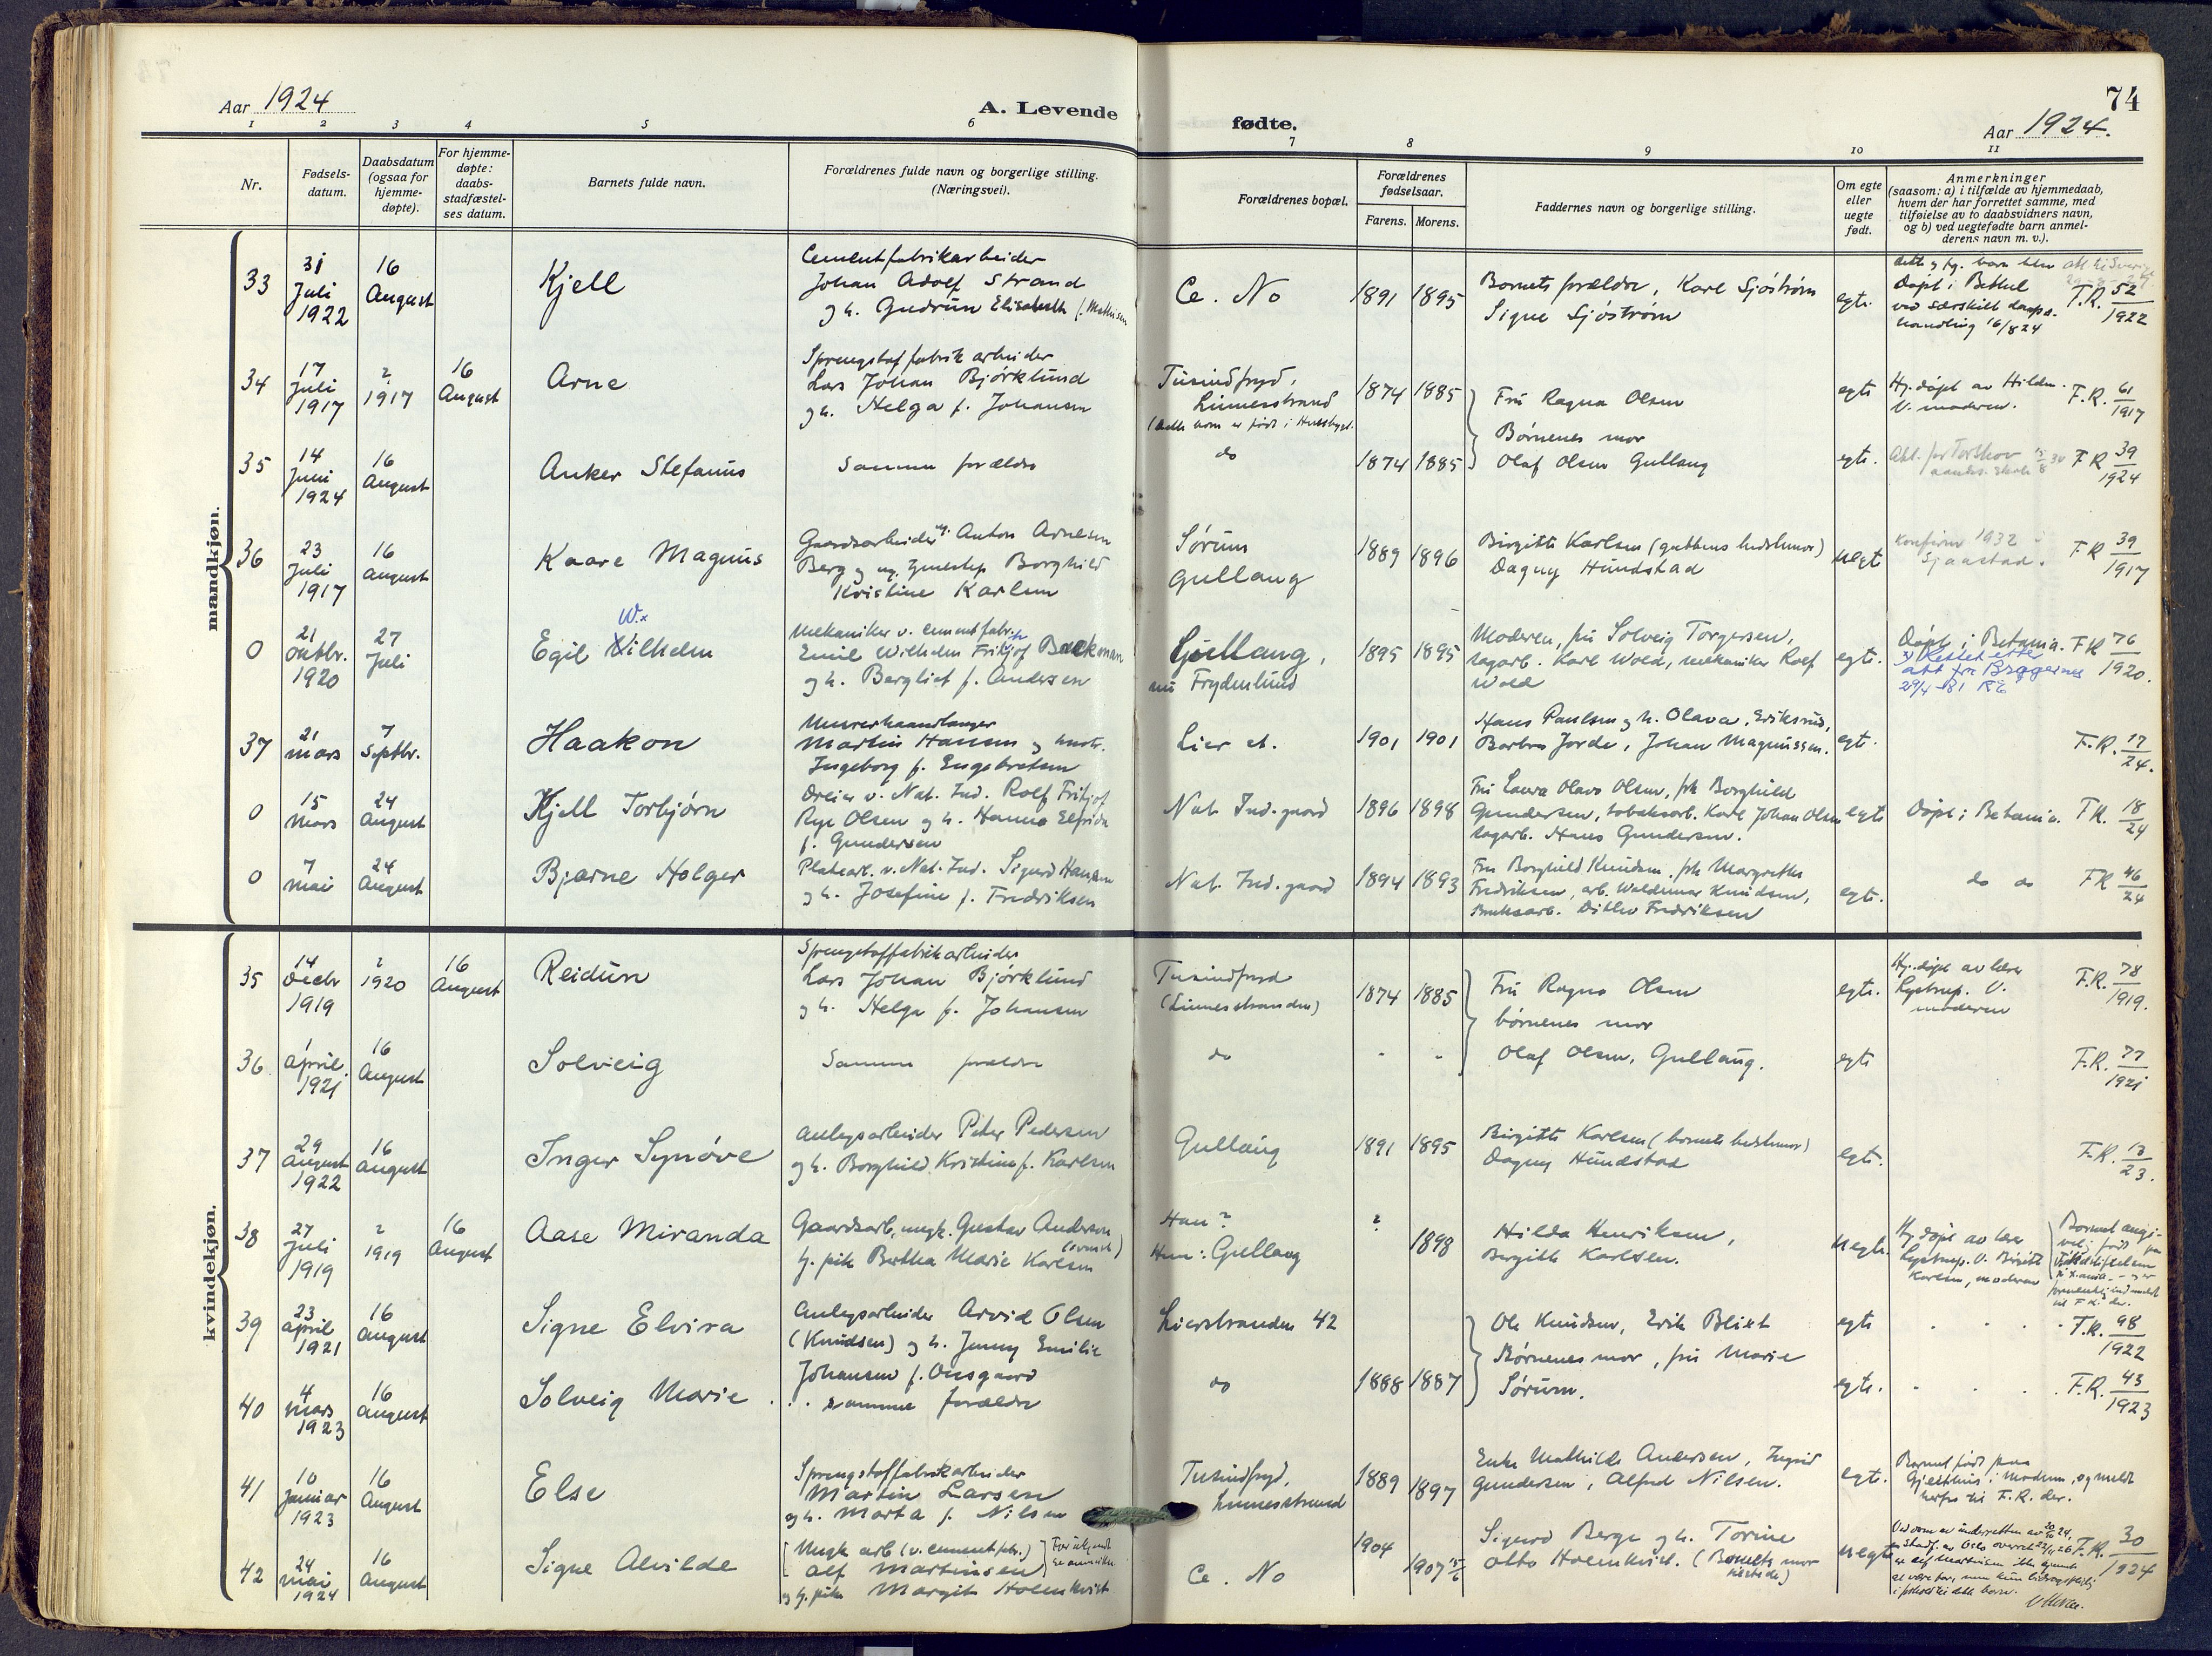 Aar 1924
A. Levende
fødte.
74
Aar 1924.
1 2 3 4 5 6 7 8 9 10 11
Nr.
Fødsels-
datum.
Daabsdatum
(ogsaa for
hjemme-
døpte).
For hjemme-
døpte:
daabs-
stadfæstel-
ses datum.
Barnets fulde navn.
Forældrenes fulde navn og borgerlige stilling.
(Næringsvei).
Forældrenes bopæl.
Forældrenes
fødselsaar.
Farens. Morens.
Faddernes navn og borgerlige stilling.
Om egte
eller
uegte
født.
Anmerkninger
(saasom: a) i tilfælde av hjemmedaab,
hvem der har forrettet samme, med
tilføielse av to daabsvidners navn,
og b) ved uegtefødte barn anmel-
derens navn m. v.).
mandkjøn.
33
31
Juli
1922
16
August
Kjell
Cementfabrikarbeider
Johan Adolf Strand
og h. Gudrun Elisabeth f. Mathisen
Ce. No
1891 1895
Barnets forældre, Karl Sjöström
Signe Sjöström
egte.
Døpt i Bethel
ved særskilt daaps-
handling 16/8 24
F.R. 52/1922
34
17
Juli
1917
?
1917
16
August
Arne
Sprengstoffabrikarbeider
Lars Johan Björklund
og h. Helga f. Johansen
Tusindfryd,
Linnesstrand
1874 1885
Fru Ragna Olsen
Børnenes mor
Olaf Olsen Gullaug
egte
Hj.døpt av
V. moderen.
F.R. 61/1917
35
14
Juni
1924
16
August
Anker Stefanus
Samme forældre
do
1874 1885
egte.
F R 39/1924
36
23
Juli
1917
16
August
Kaare Magnus
Gaardsarbeider ug. Anton Arnesen
Berg og ug. tjenestep. Borghild
Kristine Karlsen
Sørum
Gullaug
1889 1896
Birgitte Karlsen (guttens bedstemor)
Dagny Hundstad
uegt
Konfirm 1932 i
Sjaastad.
F R 39/1917
0
21
Oktbr.
1920
27
Juli
W.x
Egil Wilhelm
Mekaniker v. cementfabr.
Emil Wilhelm Fritjof Backman
og h. Bergliot f. Andersen
Gullaug,
nu Frydenlund
1895 1895
Moderen, fru Solveig Torgersen,
sagarb. Karl Wold, mekaniker Rolf
Wold
egte.
Døpt i Betania.
x) Rettet etter
att fra Bragernes
29/4-81 RE
F R 76/1920.
37
21
mars
7
Septbr.
Haakon
Murerhaandlanger
Martin Hansen og hustr.
Ingeborg f. Engebretsen
Lier st.
1901 1901
Hans Paulsen og h. Olava, Eriksrud,
Barbro Jorde, Johan Magnussen.
egt.
F.R. 17/24.
0
15
Mars
24
August
Kjell Torbjørn
Dreier v. Nat. Ind. Rolf Fritjof
Rye Olsen og h. Hanna Elfrida
f. Gundersen
Nat. Ind.gaard
1896 1898
Fru Laura Olava Olsen, frk Borghild
Gundersen, tobaksarb. Karl Johan Olsen
sagarb. Hans Gundersen.
egte
Døpt i Betania.
F.R. 18/24
0
7
mai
24
August
Bjarne Holger
Platearb. v. Nat. Ind. Sigurd Hansen
og h. Josefine f. Fredriksen
Nat. Ind.gaard
1894 1893
Fru Borghild Knudsen, frk Margrethe
Fredriksen, arb. Waldemar Knudsen,
Bruksarb. Ditlev Fredriksen
egte.
do do
FR 46/24
kvindekjøn.
35
14
Decbr
1919
?
1920
16
August
Reidun
Sprengstoffabrikarbeider
Lars Johan Björklund
og h. Helga f. Johansen
Tusindfryd
(Linnesstranden)
1874 1885
Fru Ragna Olsen
børnenes mor
Olaf Olsen, Gullaug.
egte.
Hj.døpt av lærer
Lystrup. V.
moderen
F.R. 78/1919.
36
1
April
1921
16
August
Solveig
Samme forældre
do
- -
egte
F.R. 77/1921
37
29
August
1922
16
August
Inger Synøve
Anlegsarbeider Peter Pedersen
og h. Borghild Kristine f. Karlsen
Gullaug
1891 1895
Birgitte Karlsen (barnets bedstemor)
Dagny Hundstad
egte.
F.R. 13/23.
38
27
Juli
1919
?
1919
16
August
Aase Miranda
Gaardsarb. ungk. Gustav Anderson
(svensk)
tj. pike Bertha Marie Karlsen
Han ?
Hun: Gullaug
?
1898
Hilda Henriksen,
Birgitte Karlsen.
uegte.
Hj.døpt av lærer
Lystrup. V. Birgitte
Karlsen, moderen
39
23
April
1921
16
August
Signe Elvira
Anlegsarbeider Arvid Olsen
(Knudsen) og h. Jenny Emilie
Johansen f. Onsgaard
Lierstranden 42
Ole Knudsen, Erik Blikt
Børnenes mor, fru Marie
Sørum.
egte
F.R. 98/1922
40
4
mars
1923
16
August
Solveig Marie
samme forældre
do
1888 1887
egte.
F.R. 43/1923
41
10
Januar
1923
16
August
Else
Sprengstoffabrikarbeider
Martin Larsen
og h. Marta f. Nilsen
Tusindfryd,
Linnesstrand
1889 1897
Enke Mathilde Andersen, Ingrid
Gundersen, Alfred Nilsen.
egt.
Barnet født paa
Gjesthus i Modum, og meldt
herfra til F.R. der.
42
24
mai
1924
16
August
Signe Alvilde
Ungk arb (v. cementfabr.)
Alf Martinsen
og tj. pike Margit Holmkvist
Ce. No
1904
1907 15/6
Sigurd Berge og h. Torine
Otto Holmkvist. (Barnets mor
uegte
F.R. 30/1924